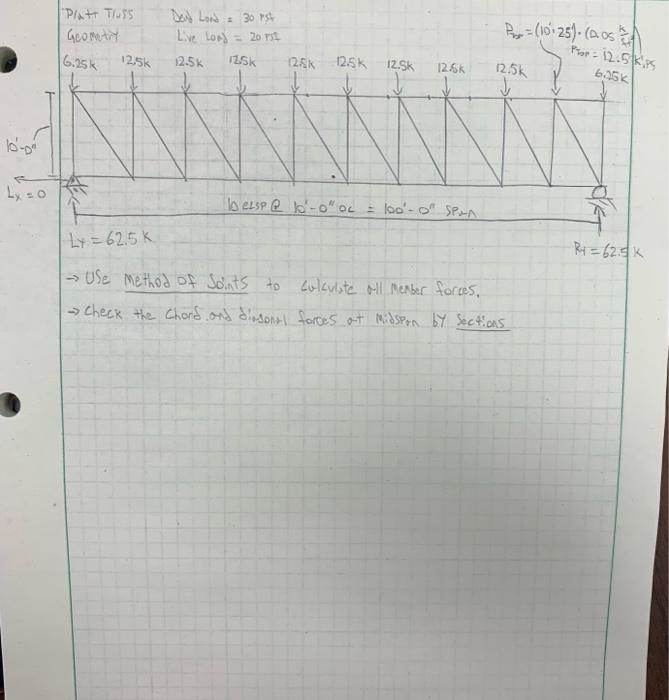 Pratt Truss Dead Load = 30 PSF
Geometry Live Load = 20 PSF
P Top = (10'·25')·(0.05 k/sf)
P Top = 12.5 kips
6.25k 12.5k 12.5k 12.5k 12.5k 12.5k 12.5k 12.5k 12.5k 6.25k
10'-0"
Lx = 0
10 @ 10'-0" OC = 100'-0" Span
LY = 62.5 K
RY = 62.5 K
→ Use Method of Joints to calculate all member forces.
→ Check the chord and diagonal forces at midspan by Sections